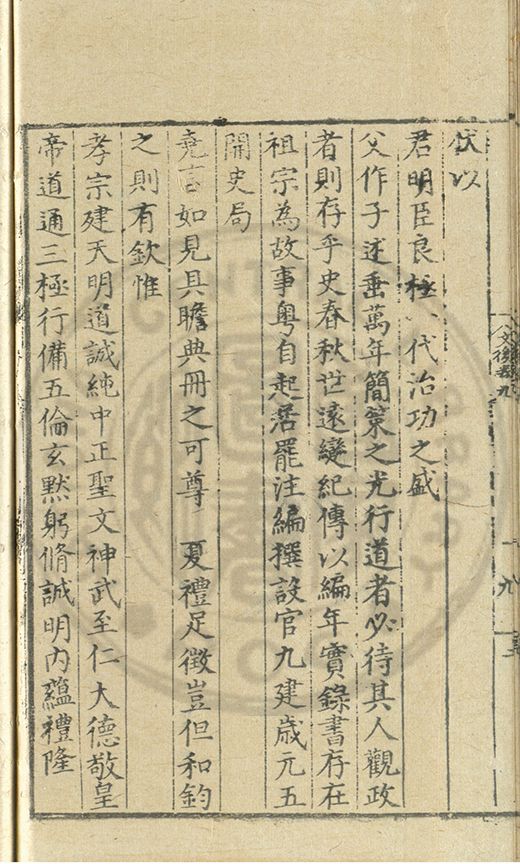 伏以
君明臣良極一代治功之盛
父作子述垂萬年簡策之光行道者必待其人觀政
者則存乎史春秋世遠變紀傳以編年實錄書存在
祖宗為故事粵自起居罷注編撰設官九建歲元五
開史局
堯言如見具瞻典冊之可尊 夏禮足徵豈但和鈞
之則有欽惟
孝宗建天明道誠純中正聖文神武至仁大德敬皇
帝道通三極行備五倫玄默躬脩誠明內蘊禮隆